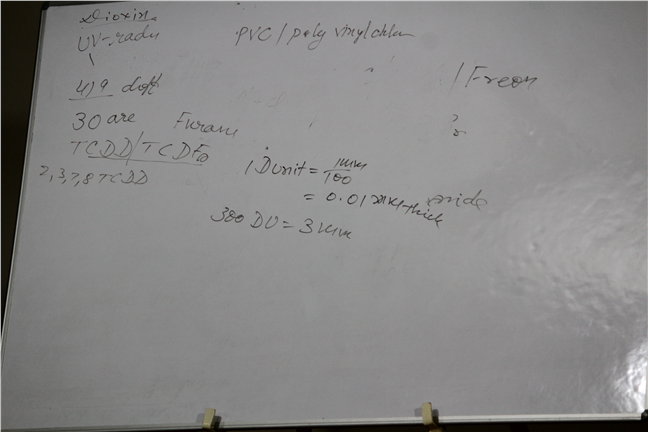 Dioxin
UV-radn
PVC / poly vinyl chlor
/ Freon
419 doft
30 are Furans
TCDD/TCDF
2,3,7,8 TCDD
1 DUnit = 1mm/100
= 0.01 mm thick
300 DU = 3 mm